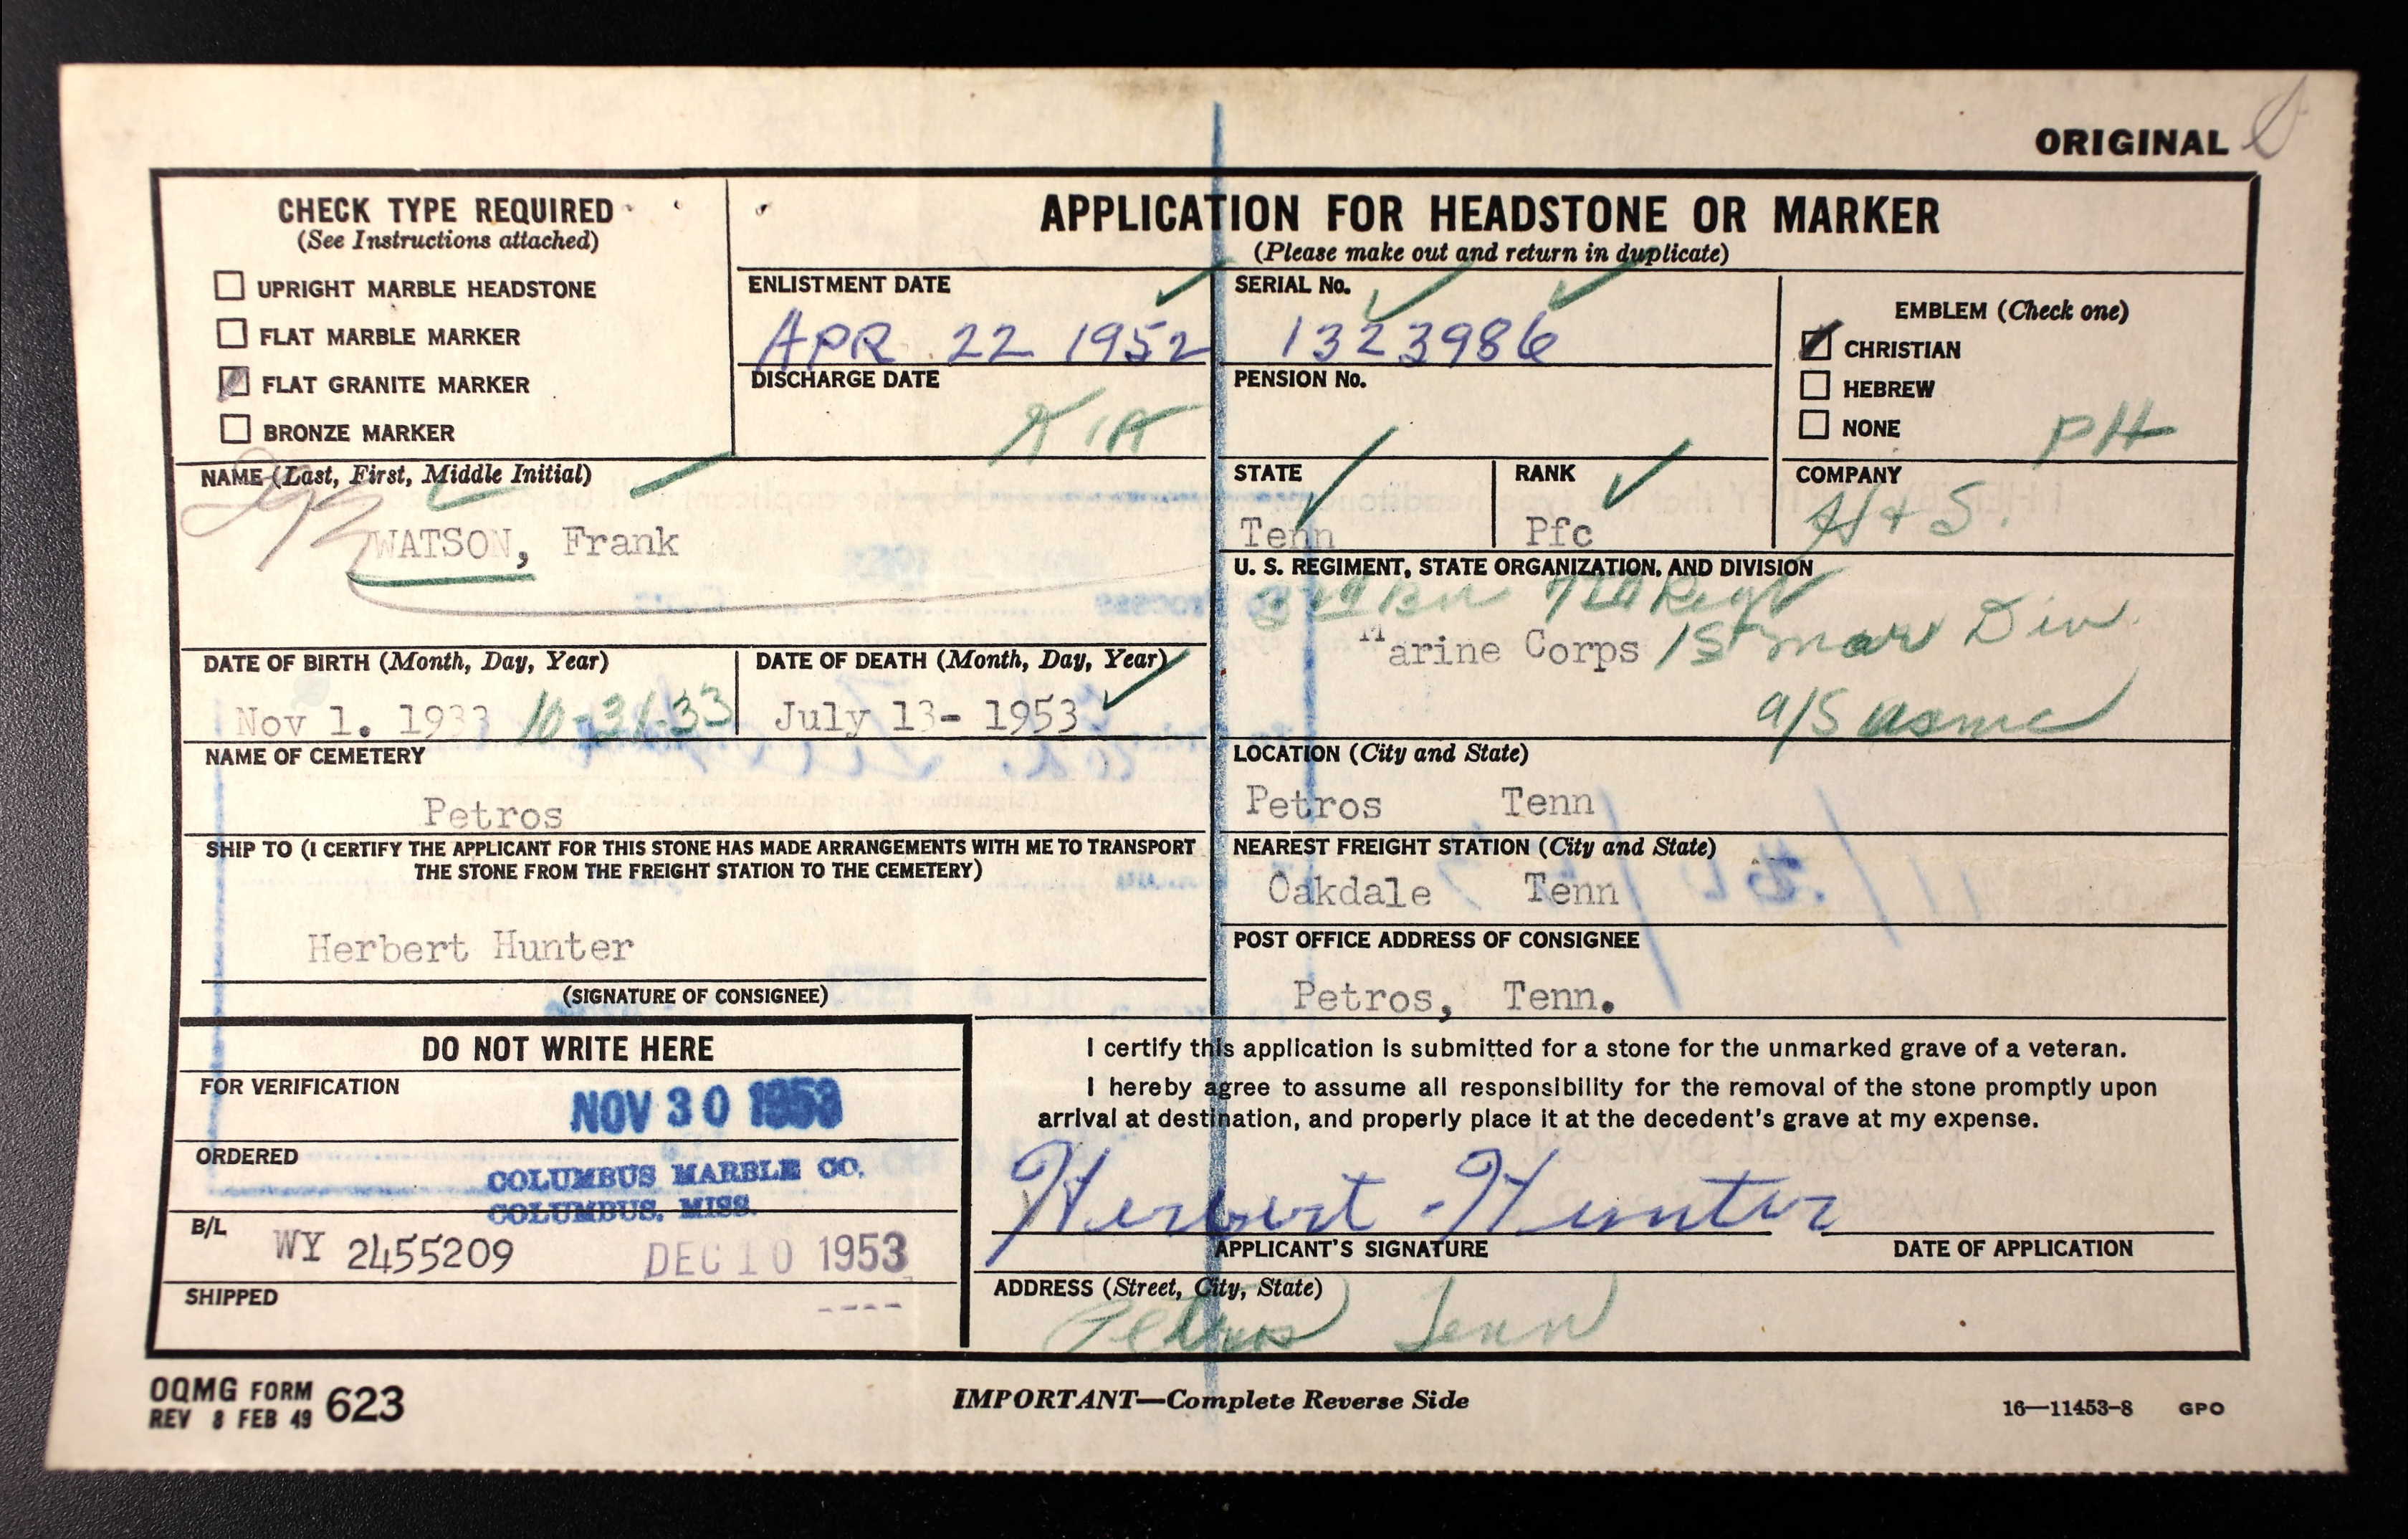 ORIGINAL
CHECK TYPE REQUIRED
(See Instructions attached)
UPRIGHT MARBLE HEADSTONE
FLAT MARBLE MARKER
FLAT GRANITE MARKER
BRONZE MARKER
APPLICATION FOR HEADSTONE OR MARKER
(Please make out and return in duplicate)
ENLISTMENT DATE
APR 22 1952
SERIAL No.
1323986
DISCHARGE DATE
KIA
PENSION No.
EMBLEM (Check one)
CHRISTIAN
HEBREW
NONE
PH
NAME (Last, First, Middle Initial)
WATSON, Frank
STATE
Tenn
RANK
Pfc
COMPANY
H + S.
U. S. REGIMENT, STATE ORGANIZATION, AND DIVISION
3rd Bn 7th Regt
Marine Corps 1st Mar Div.
a/S usmc
DATE OF BIRTH (Month, Day, Year)
Nov 1. 1933 10-31-33
DATE OF DEATH (Month, Day, Year)
July 13- 1953
NAME OF CEMETERY
Petros
LOCATION (City and State)
Petros Tenn
SHIP TO (I CERTIFY THE APPLICANT FOR THIS STONE HAS MADE ARRANGEMENTS WITH ME TO TRANSPORT
THE STONE FROM THE FREIGHT STATION TO THE CEMETERY)
Herbert Hunter
(SIGNATURE OF CONSIGNEE)
NEAREST FREIGHT STATION (City and State)
Oakdale Tenn
POST OFFICE ADDRESS OF CONSIGNEE
Petros, Tenn.
DO NOT WRITE HERE
FOR VERIFICATION
NOV 30 1953
ORDERED
COLUMBUS MARBLE CO.
COLUMBUS, MISS.
B/L
WY 2455209 DEC 10 1953
SHIPPED
I certify this application is submitted for a stone for the unmarked grave of a veteran.
I hereby agree to assume all responsibility for the removal of the stone promptly upon
arrival at destination, and properly place it at the decedent's grave at my expense.
Herbert Hunter
APPLICANT'S SIGNATURE
DATE OF APPLICATION
ADDRESS (Street, City, State)
Petros Tenn
OQMG FORM 623
REV 8 FEB 49
IMPORTANT—Complete Reverse Side
16—11453-8 GPO